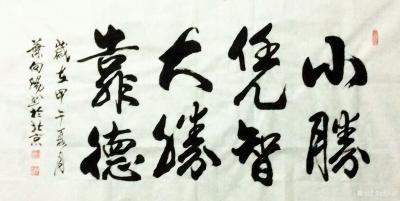 小勝
凭智
大勝
靠德
歲在甲午夏月
葉向陽書於北京